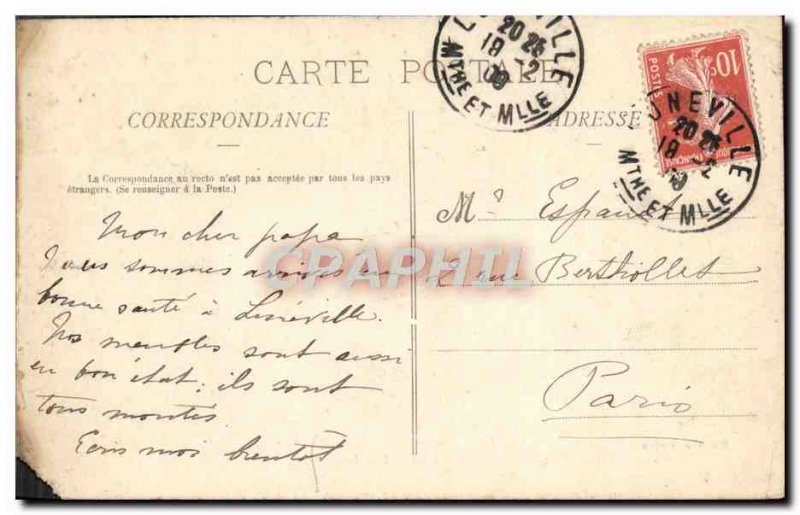 CARTE POSTALE
CORRESPONDANCE
ADRESSE
La Correspondance au recto n'est pas acceptée par tous les pays
étrangers. (Se renseigner à la Poste.)
LUNEVILLE
20 25
18 - 2
09
MTHE ET MLLE
10c
POSTES
LUNEVILLE
20 25
18 - 2
09
MTHE ET MLLE
Mon cher papa
Nous sommes arrivés en
bonne santé à Lunéville.
Nos meubles sont aussi
en bon état; ils sont
tous montés
Ecris moi bientôt
Mr Espanet
2 rue Berthollet
Paris
CPAPHIL